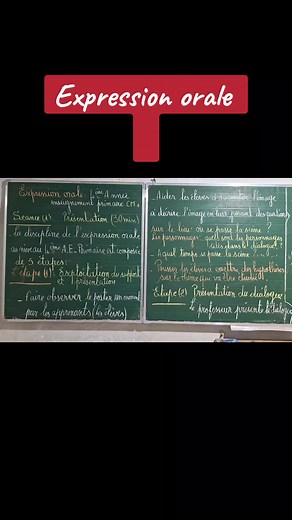 Expression orale
Expression orale: 4ème Année
enseignement primaire CM
Séance (1) Présentation (30 min)
la discipline de l'expression orale
au niveau 4ème A.E. Primaire est composée
de 5 étapes:
L'étape (1): Exploitation du support
et présentation
- Faire observer le poster un moment
par les apprenants (les élèves)
- Aider les élèves à l'image
à décrire l'image en leur posant des questions
sur le lieu: où se passe la scène?
Les personnages: quels sont les personnages
dans ce dialogue?
- A quel temps se passe la scène?
- Pousser les élèves à émettre des hypothèses
sur le thème qui va être étudié
Etape (2) Présentation du dialogue:
le professeur présente le dialogue